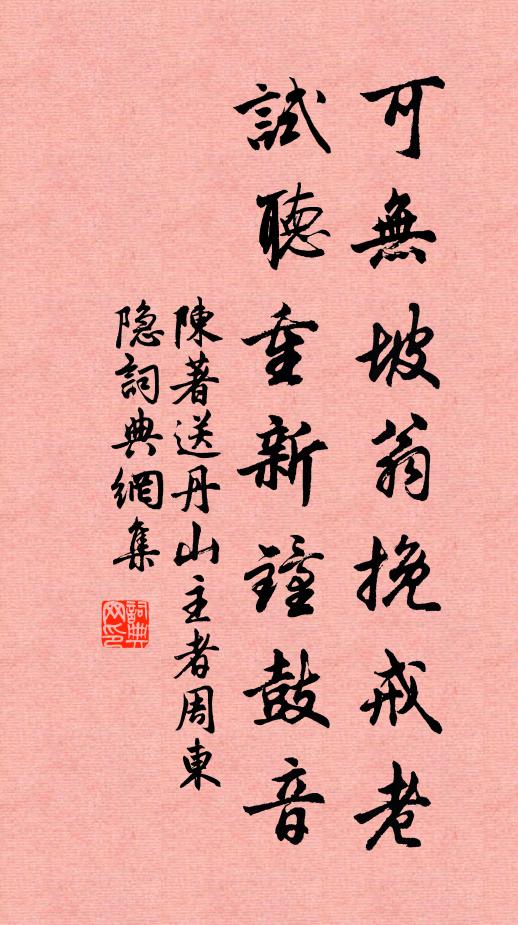 可無坡翁挽戒老
試聽重新鐘鼓音
陳著送丹山主者周東
隐詞典網集
詞典
网印